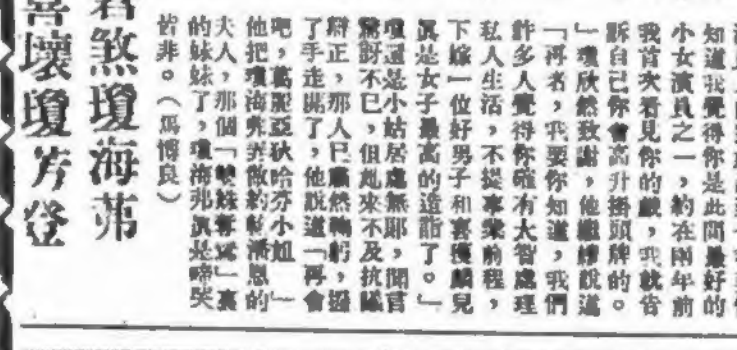 知道我覺得你是此間最好的
小女演員之一,約在兩年前
我首次看見你的戲,我就告
訴自己你會高升掛頭牌的。
」瓊欣然致謝,他繼續說道
「再者,我要你知道,我們
許多人覺得你確有大智處理
私人生活,不提事業前程,
下嫁一位好男子和喜獲麟兒
真是女子最高的造詣了。」
瓊還是小姑居處無郎,聞言
驚訝不已,但她來不及抗議
辯正,那人已鞠躬,
了手走開了,他說道「再會
吧,葛羅亞狄哈芬小姐」
他把瓊海弗弄做約翰潘恩的
夫人,那個「雙妹奪鸞」裏
的妹妹了,瓊海弗真是啼笑
皆非。(馬博良)
煞瓊海茀
壞瓊芳登